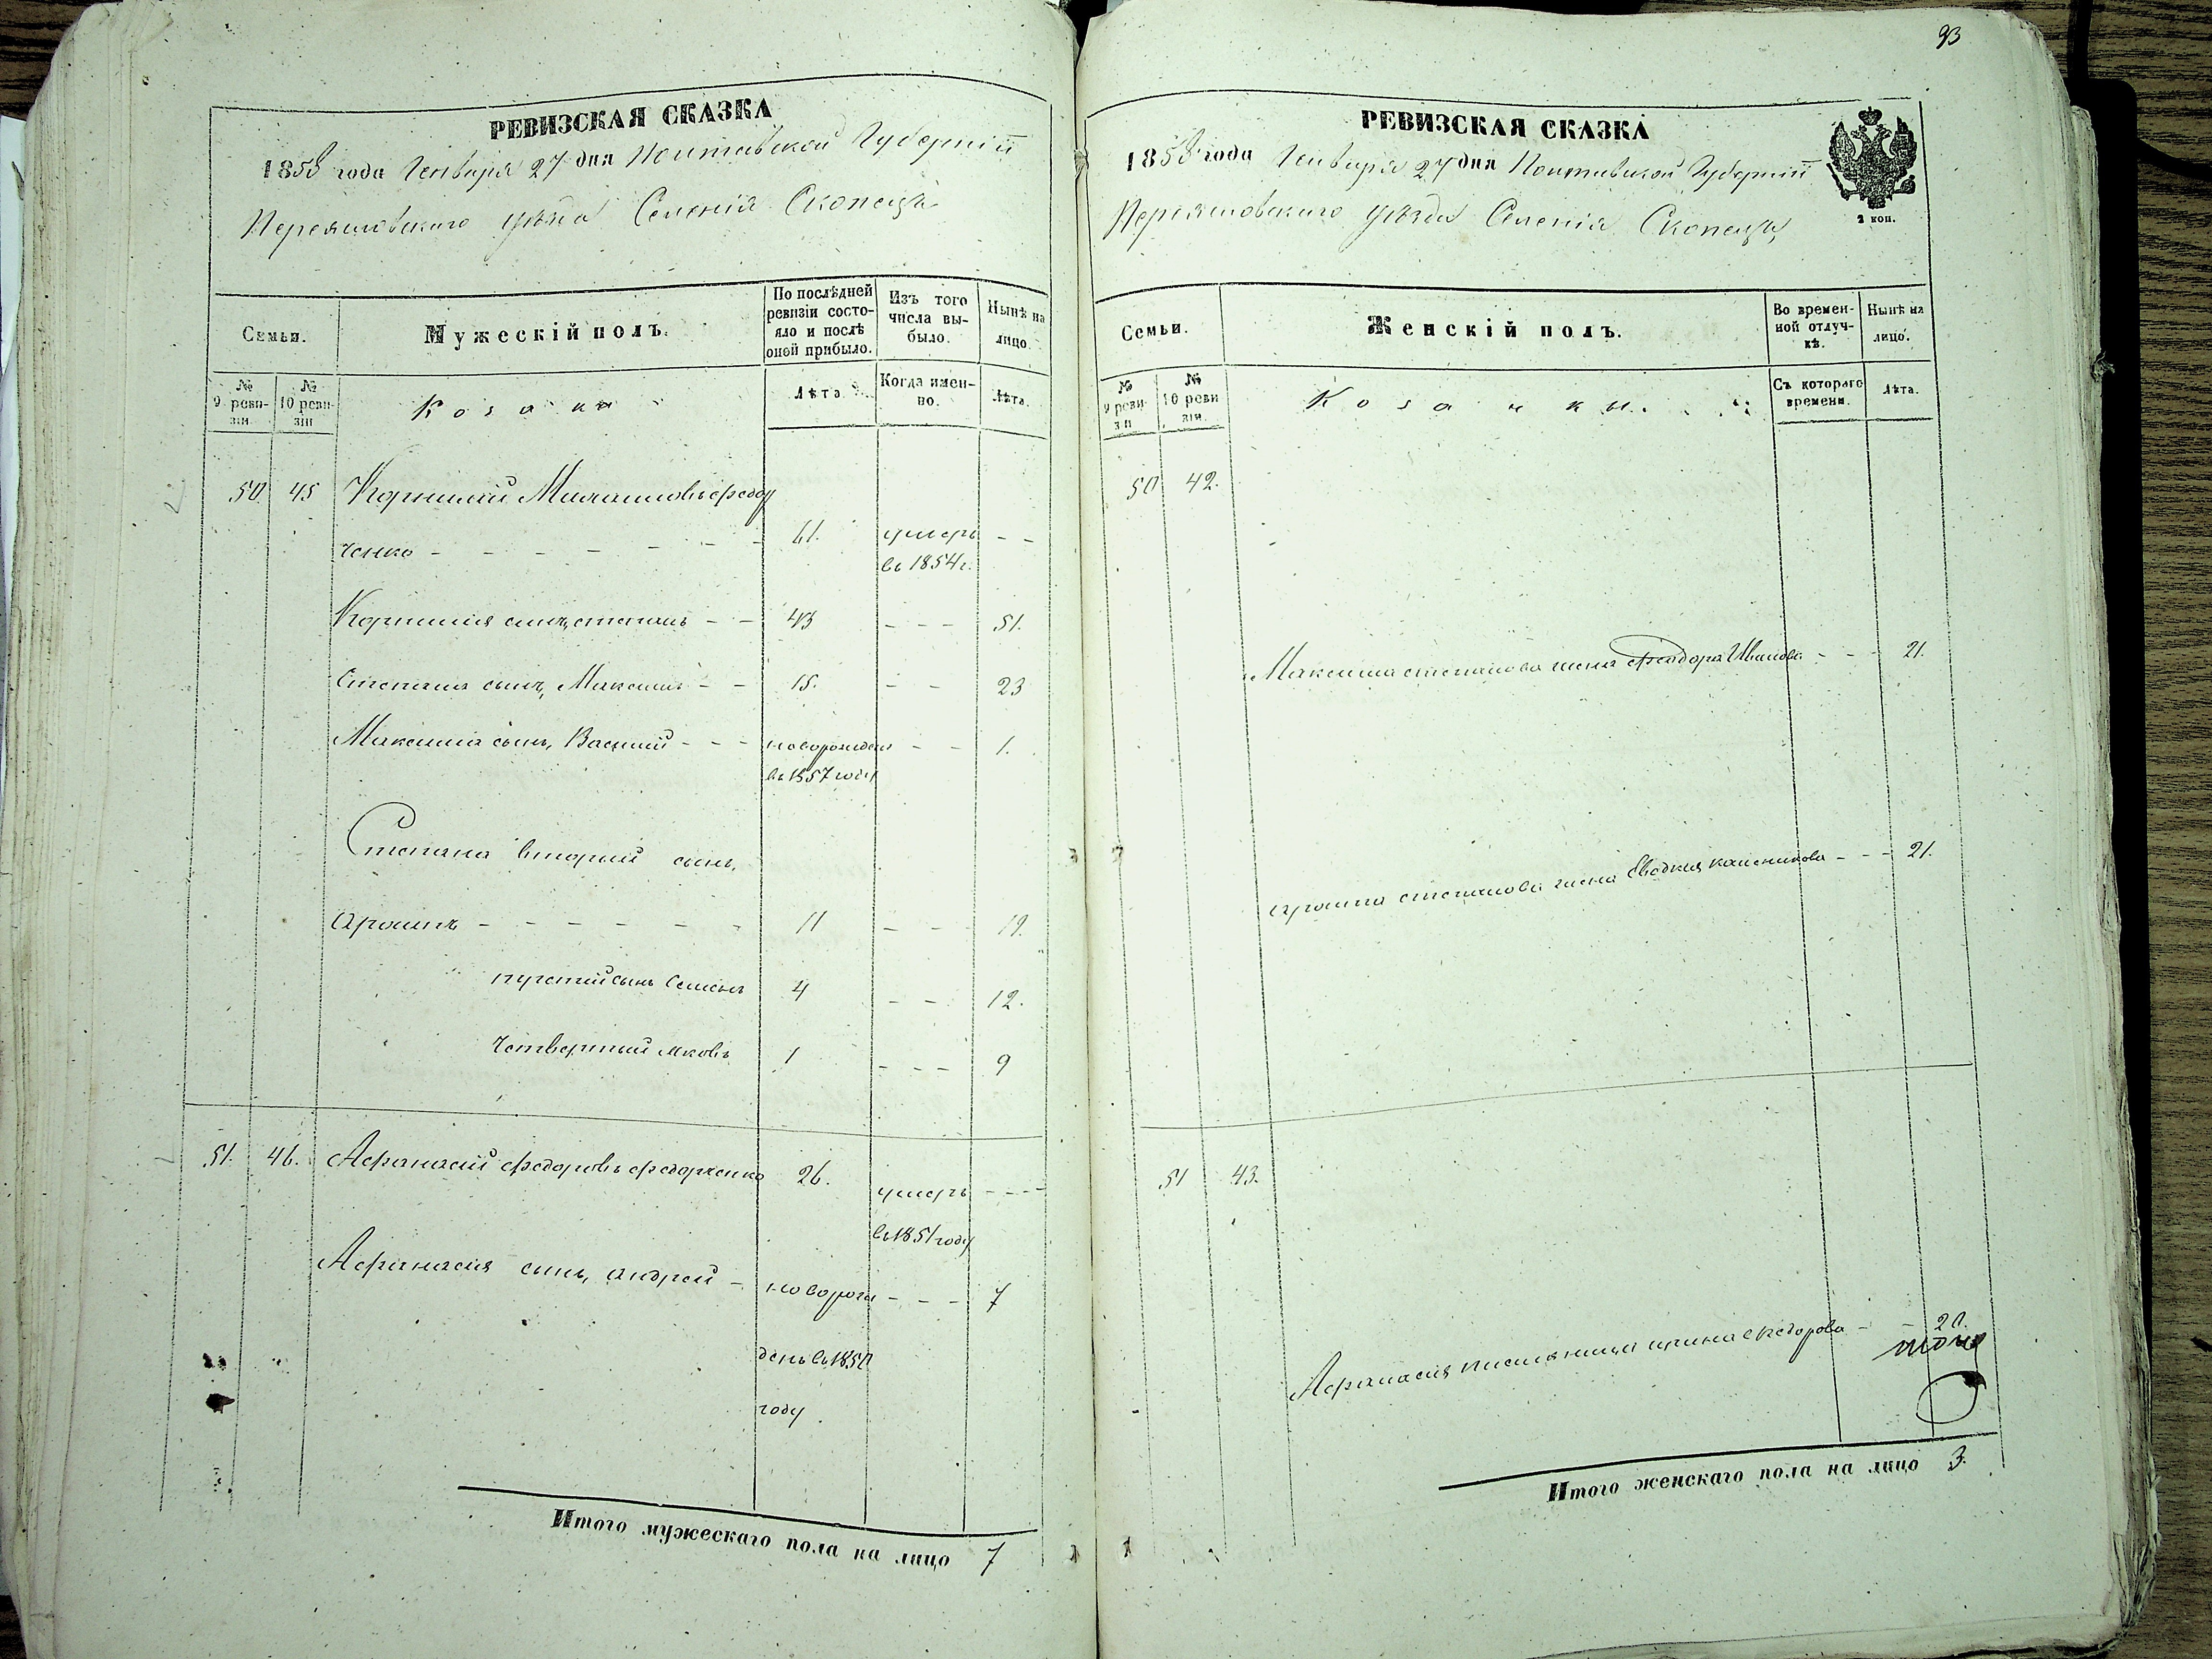 РЕВИЗСКАЯ СКАЗКА
1858 года Генваря 27 дня Полтавской Губерніи
Переяславскаго уѣзда Селенія Скопецкъ
Семьи.
Мужескій полъ.
По послѣдней ревизіи состояло и послѣ оной прибыло.
Изъ того числа выбыло.
Ныне на лицо.
№ 9 ревизіи.
№ 10 ревизіи
Козаки
Лѣта.
Когда именно.
Лѣта.
50 45 Корнилій Федор
ченко - - - - - - - 61. умеръ - -
въ 1854 г.
Корнилія сынъ, степанъ - - 43 - - - 51.
Степана сынъ, Максимъ - - 15. - - 23
Максима сынъ, Василий - - - новорожден - - 1.
въ 1857 году
Степана вторий сынъ,
- - - - - - 11 - - - 19.
третий сынъ Семенъ 4 - - 12.
четвертый яковъ 1 - - - 9
51. 46. Афанасий федоровъ федорченко 26. умеръ - - - -
въ 1851 году
Афанасия сынъ, андрей - новорож - - - 7
денъ въ 1850
году
Итого мужескаго пола на лицо 7
93
РЕВИЗСКАЯ СКАЗКА
1858 года Генваря 27 дня Полтавской Губерніи
Переяславскаго уѣзда Селенія Скопецкъ
2 коп.
Семьи.
Женскій полъ.
Во временной отлучкѣ.
Ныне на лицо.
№ 9 ревизіи
№ 10 ревизіи.
Козачки.
Съ котораго времени.
Лѣта.
50 42.
Максима степанова жена феодора Иванова - - - 21.
степанова жена Евдокия - - - 21.
51 43.
Афанасия федорова - - 20.
Итого женскаго пола на лицо 3.